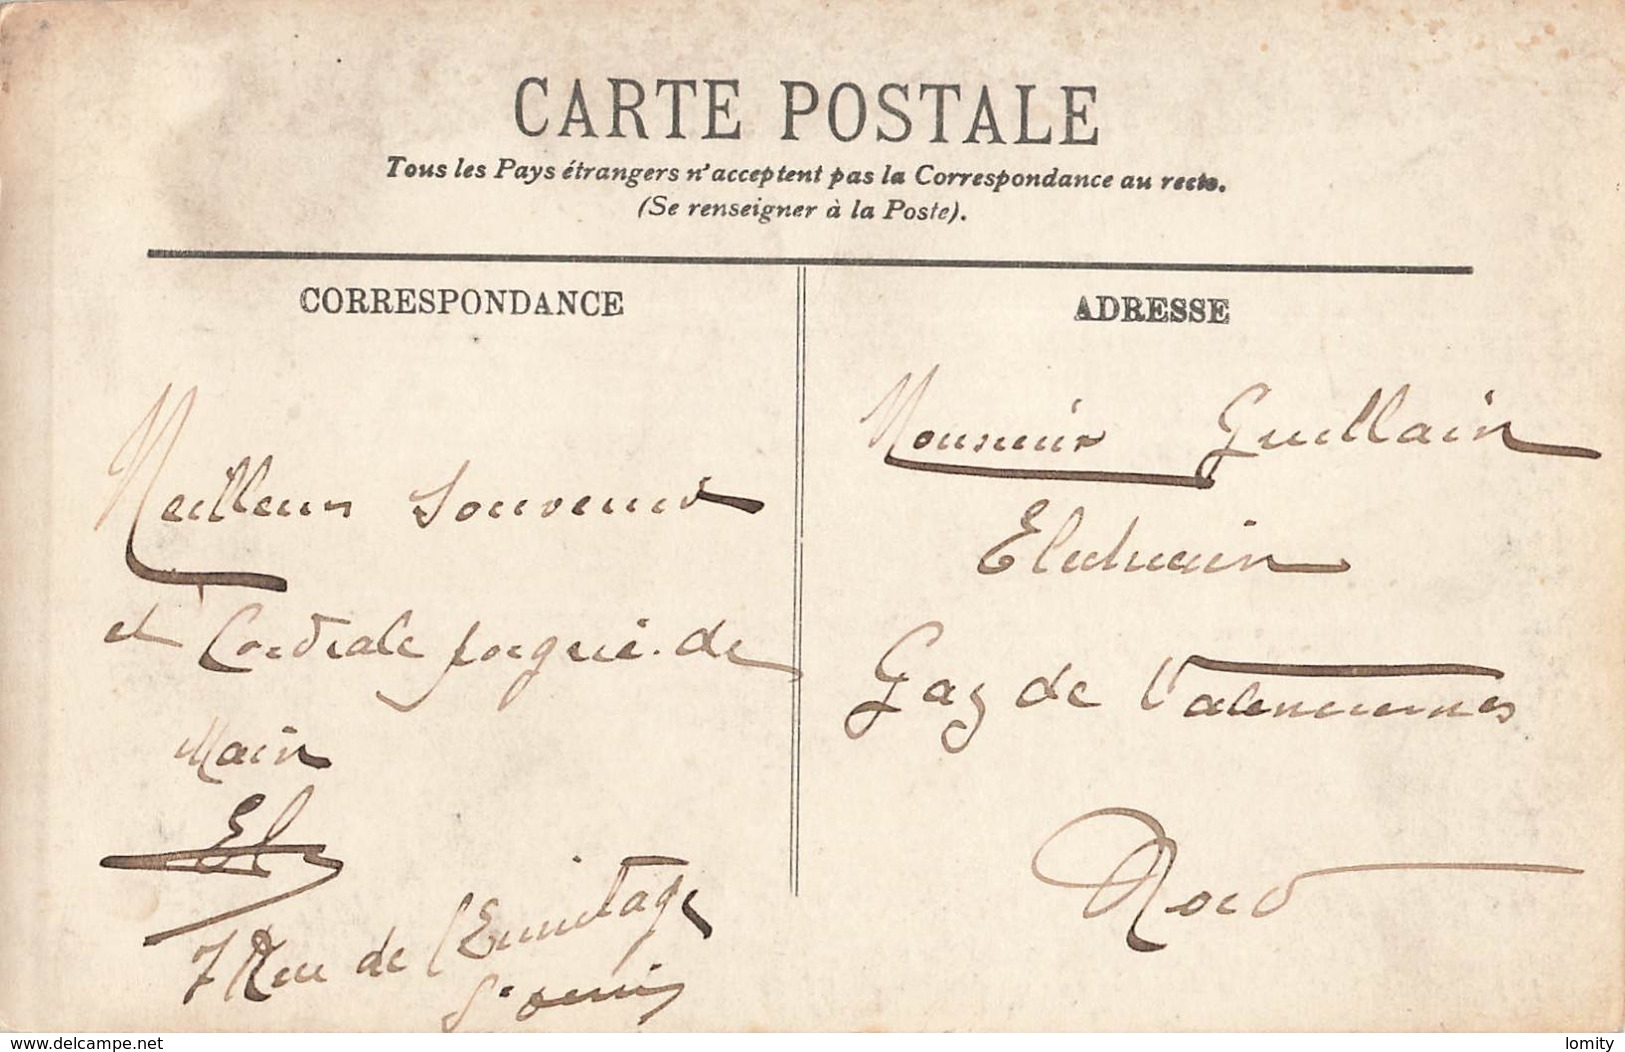 CARTE POSTALE
Tous les Pays étrangers n'acceptent pas la Correspondance au recto.
(Se renseigner à la Poste).
CORRESPONDANCE
Meilleurs Souvenirs
et Cordiale poignée de
Main
7 Rue de l'Ermitage
St Denis
ADRESSE
Monsieur Guillain
Electricien
Gaz de Valenciennes
Nord
www.delcampe.net
lomity